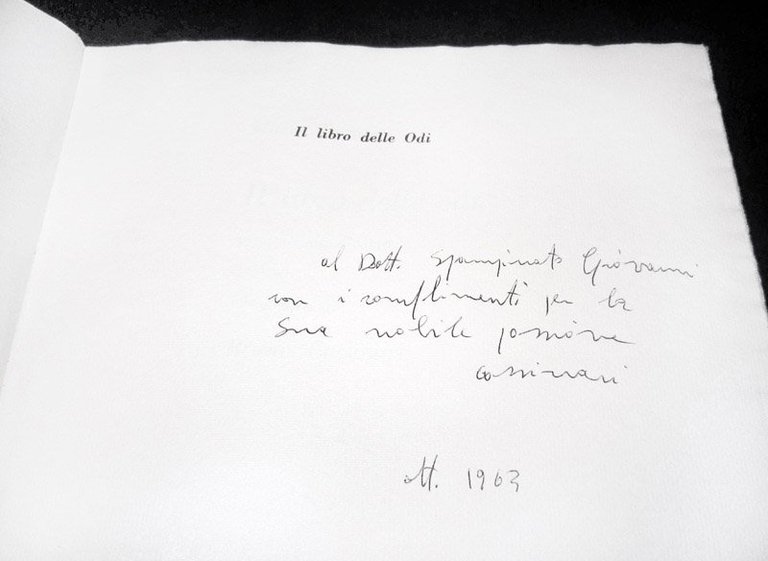 Il libro delle Odi
al Dott. Spampinato Giovanni
con i complimenti per la
Sua nobile passione
Cassinari
ott. 1963